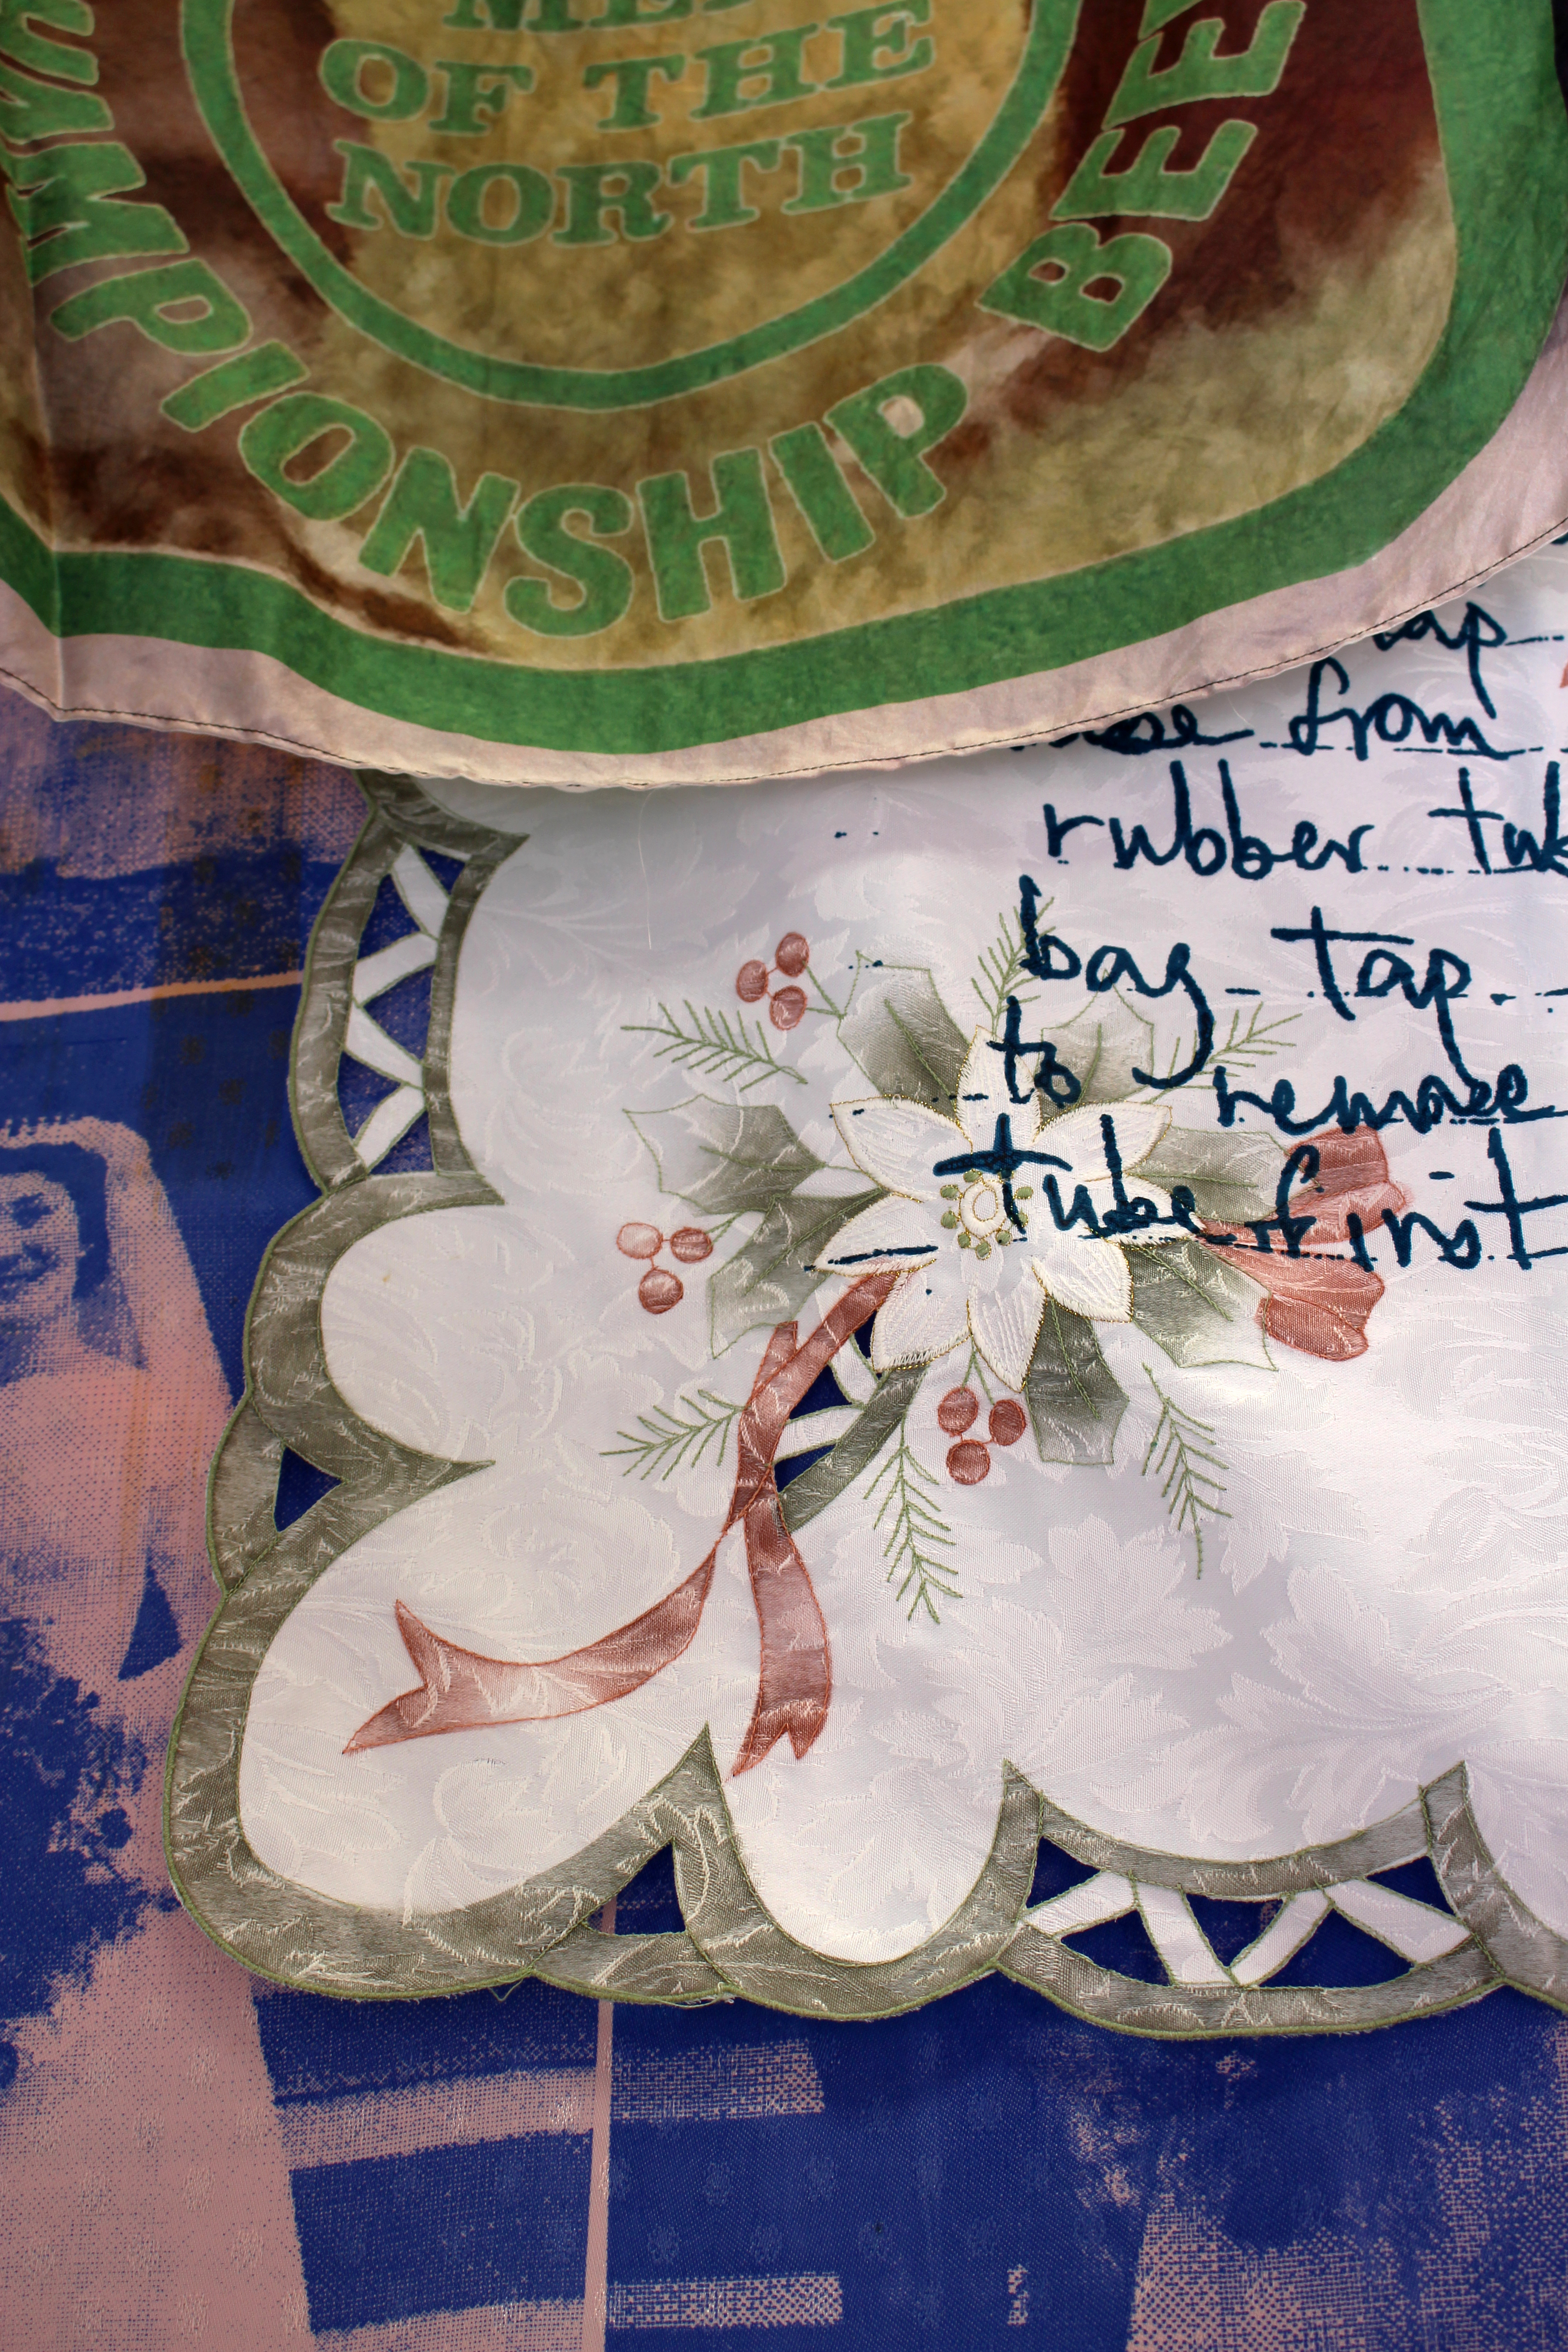 OF THE
NORTH
PIONSHIP BEE
tap
from
rubber
bag tap.
to remove
tube first